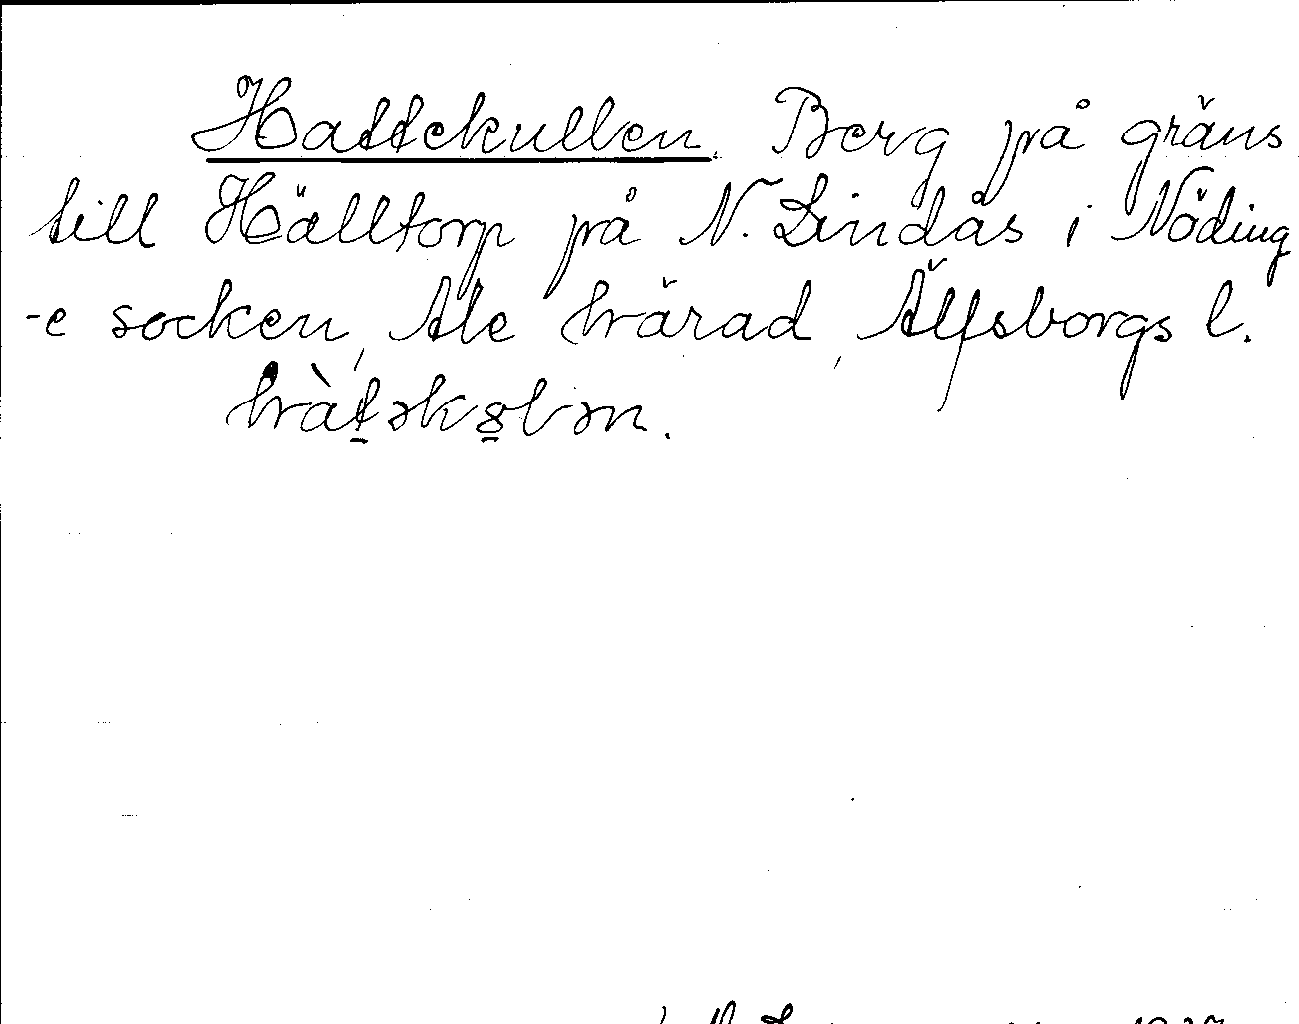 Hattekullen. Berg på gräns
till Hälltorp på N. Lindås i Nöding
-e socken, Ale härad, Älfsborgs l.
hàt̠əkɞ̠lən.